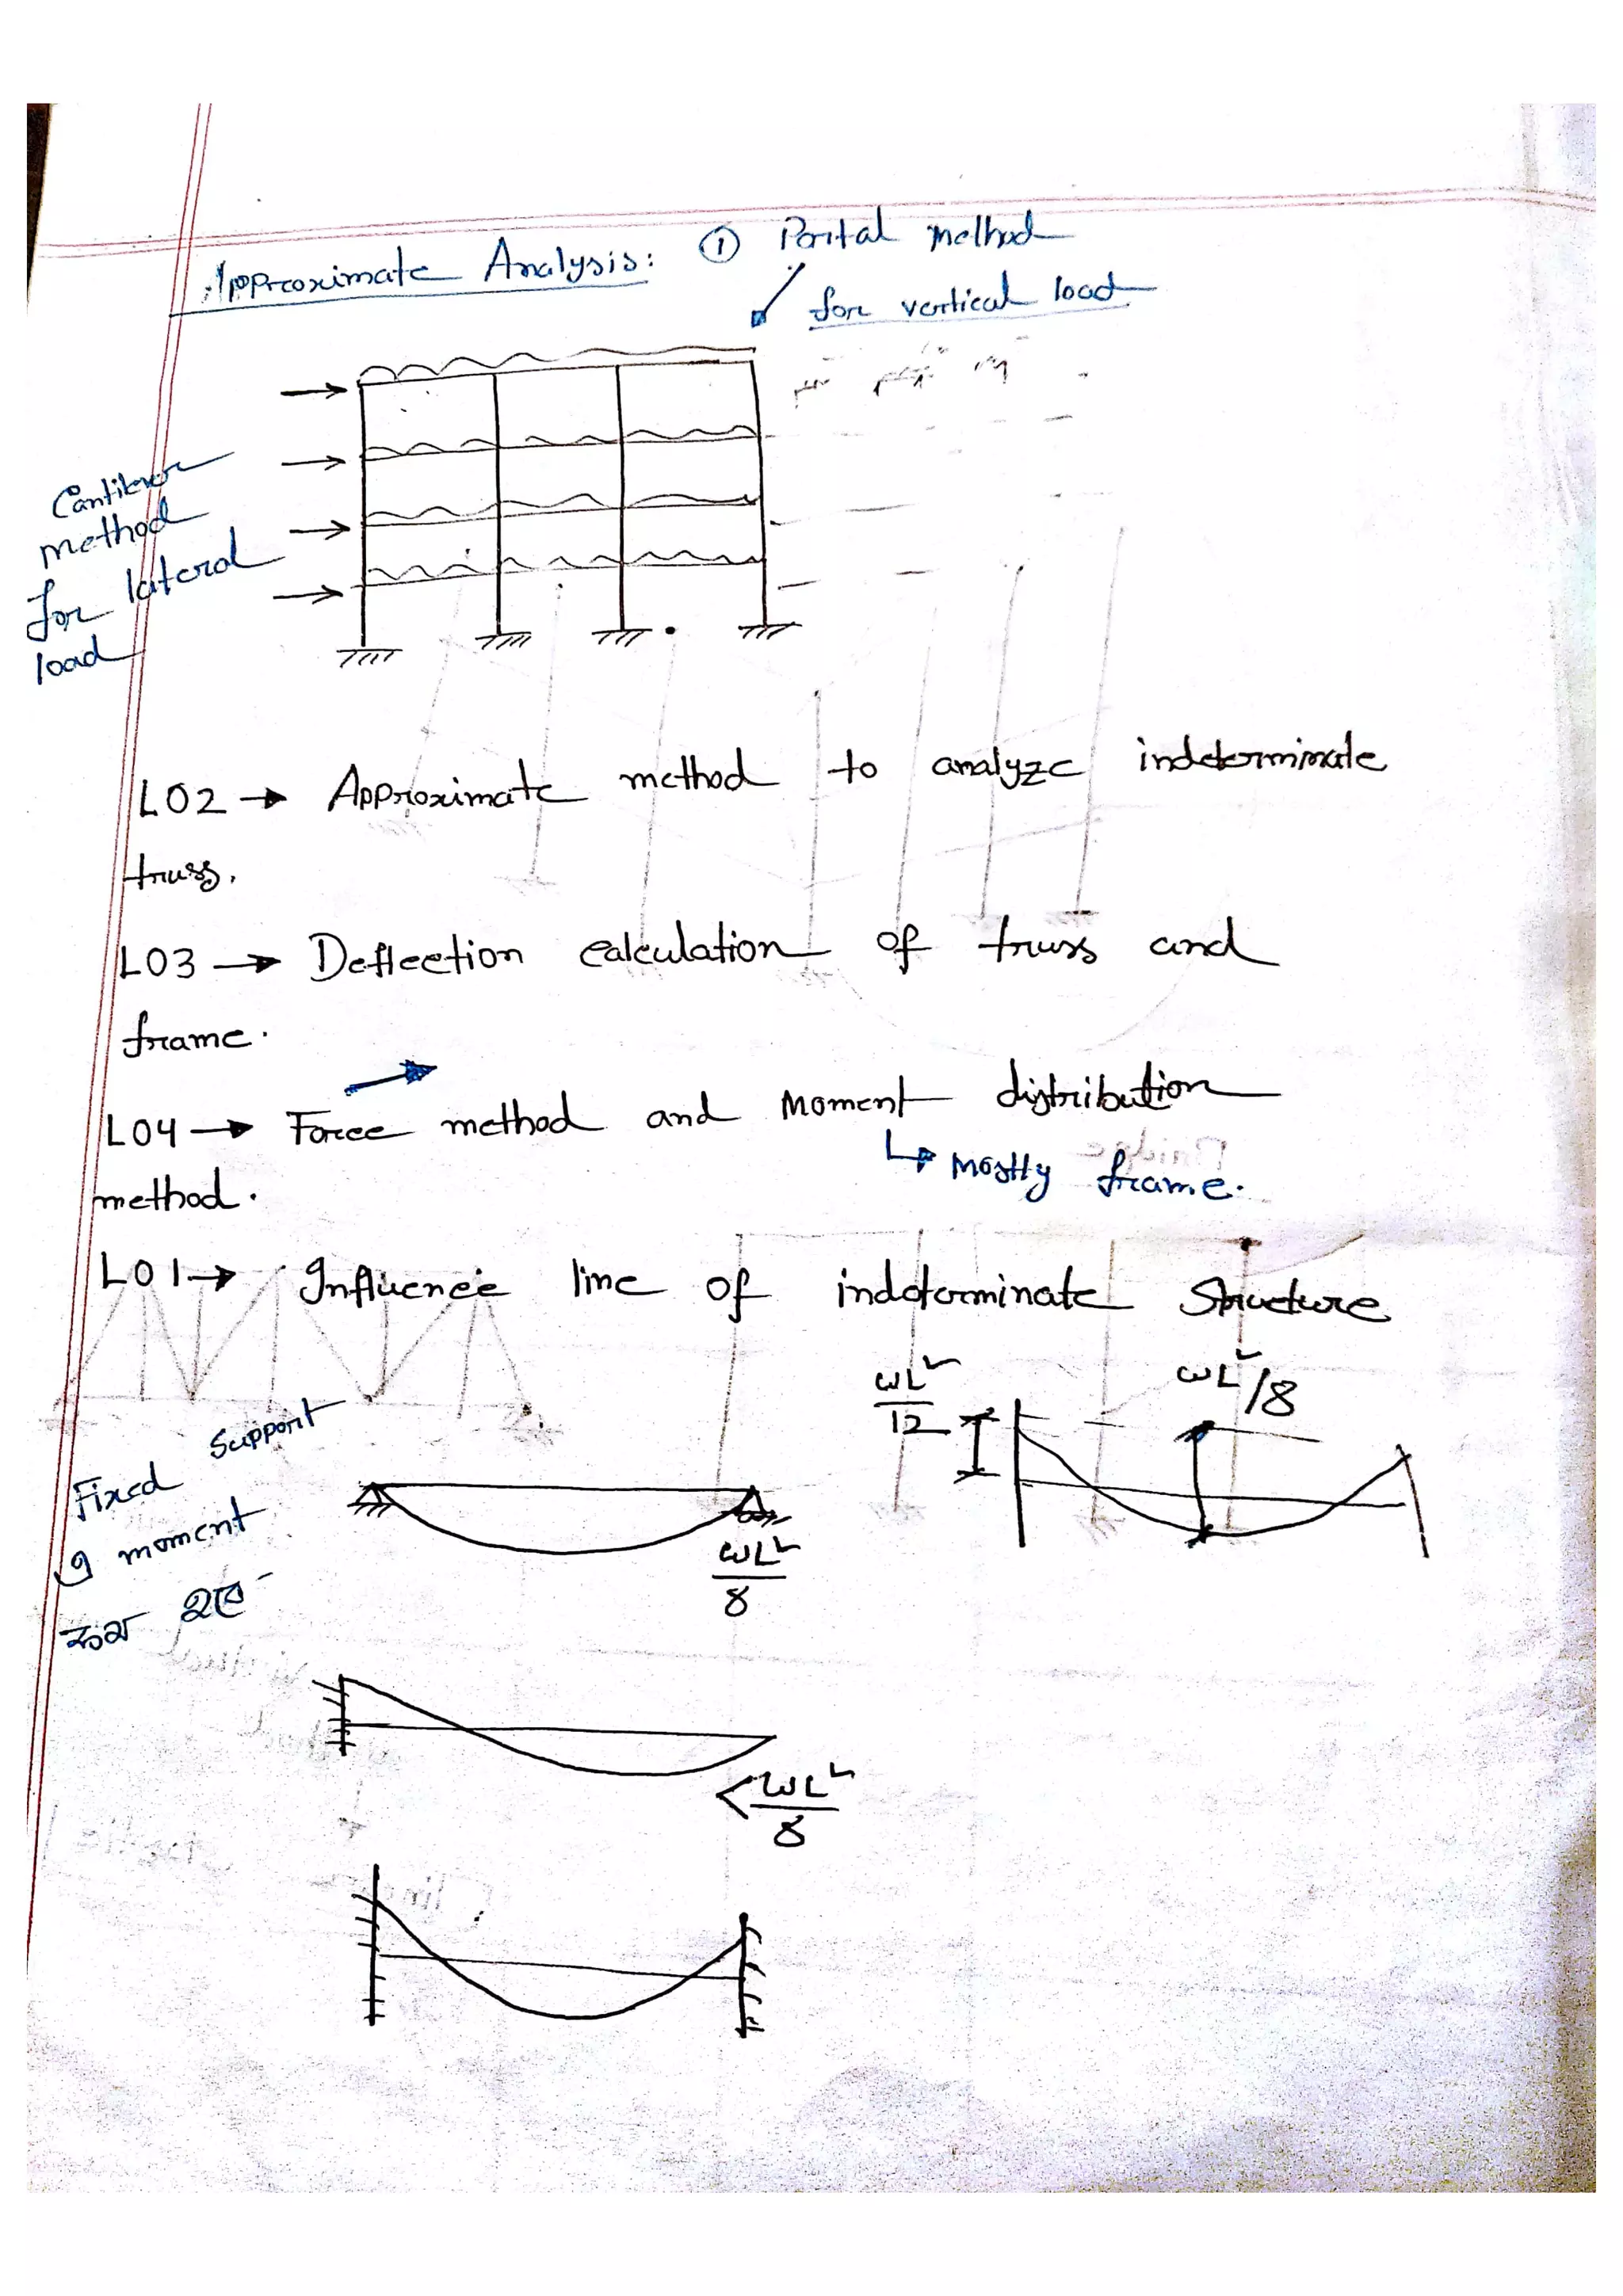 Approximate Analysis: ① Portal method
for vertical load
Cantilever
method
for lateral
load
LO2 → Approximate method to analyze indeterminate
truss.
LO3 → Deflection calculation of truss and
frame.
LO4 → Force method and Moment distribution
↳ mostly frame.
method.
LO1 → Influence line of indeterminate Structure
Fixed support
এ moment
কম হবে
ωL²/8
ωL²/12
ωL²/8
<ωL²/8